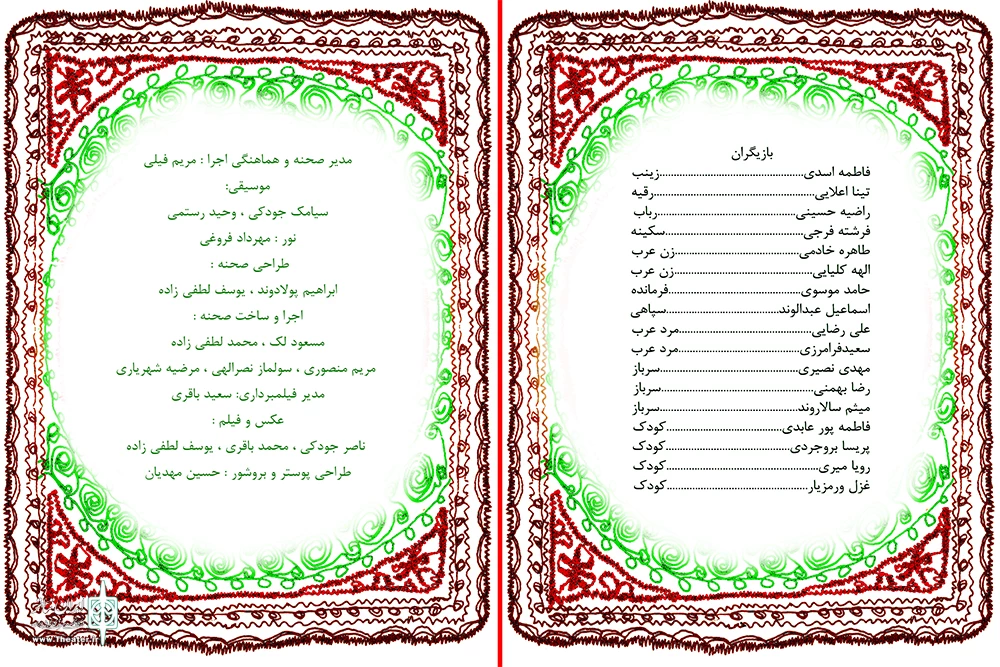 بازیگران
فاطمه اسدی............................................زینب
تینا اعلایی.................................................رقیه
راضیه حسینی..........................................رباب
فرشته فرجی..........................................سکینه
طاهره خادمی......................................زن عرب
الهه کلیایی..........................................زن عرب
حامد موسوی........................................فرمانده
اسماعیل عبدالوند..................................سپاهی
علی رضایی.........................................مرد عرب
سعیدفرامرزی.....................................مرد عرب
مهدی نصیری..........................................سرباز
رضا بهمنی..............................................سرباز
میثم سالاروند..........................................سرباز
فاطمه پور عابدی...................................کودک
پریسا بروجردی......................................کودک
رویا میری................................................کودک
غزل ورمزیار...........................................کودک
مدیر صحنه و هماهنگی اجرا : مریم فیلی
موسیقی:
سیامک جودکی ، وحید رستمی
نور : مهرداد فروغی
طراحی صحنه :
ابراهیم پولادوند ، یوسف لطفی زاده
اجرا و ساخت صحنه :
مسعود لک ، محمد لطفی زاده
مریم منصوری ، سولماز نصرالهی ، مرضیه شهریاری
مدیر فیلمبرداری: سعید باقری
عکس و فیلم :
ناصر جودکی ، محمد باقری ، یوسف لطفی زاده
طراحی پوستر و بروشور : حسین مهدیان
www.theater.ir